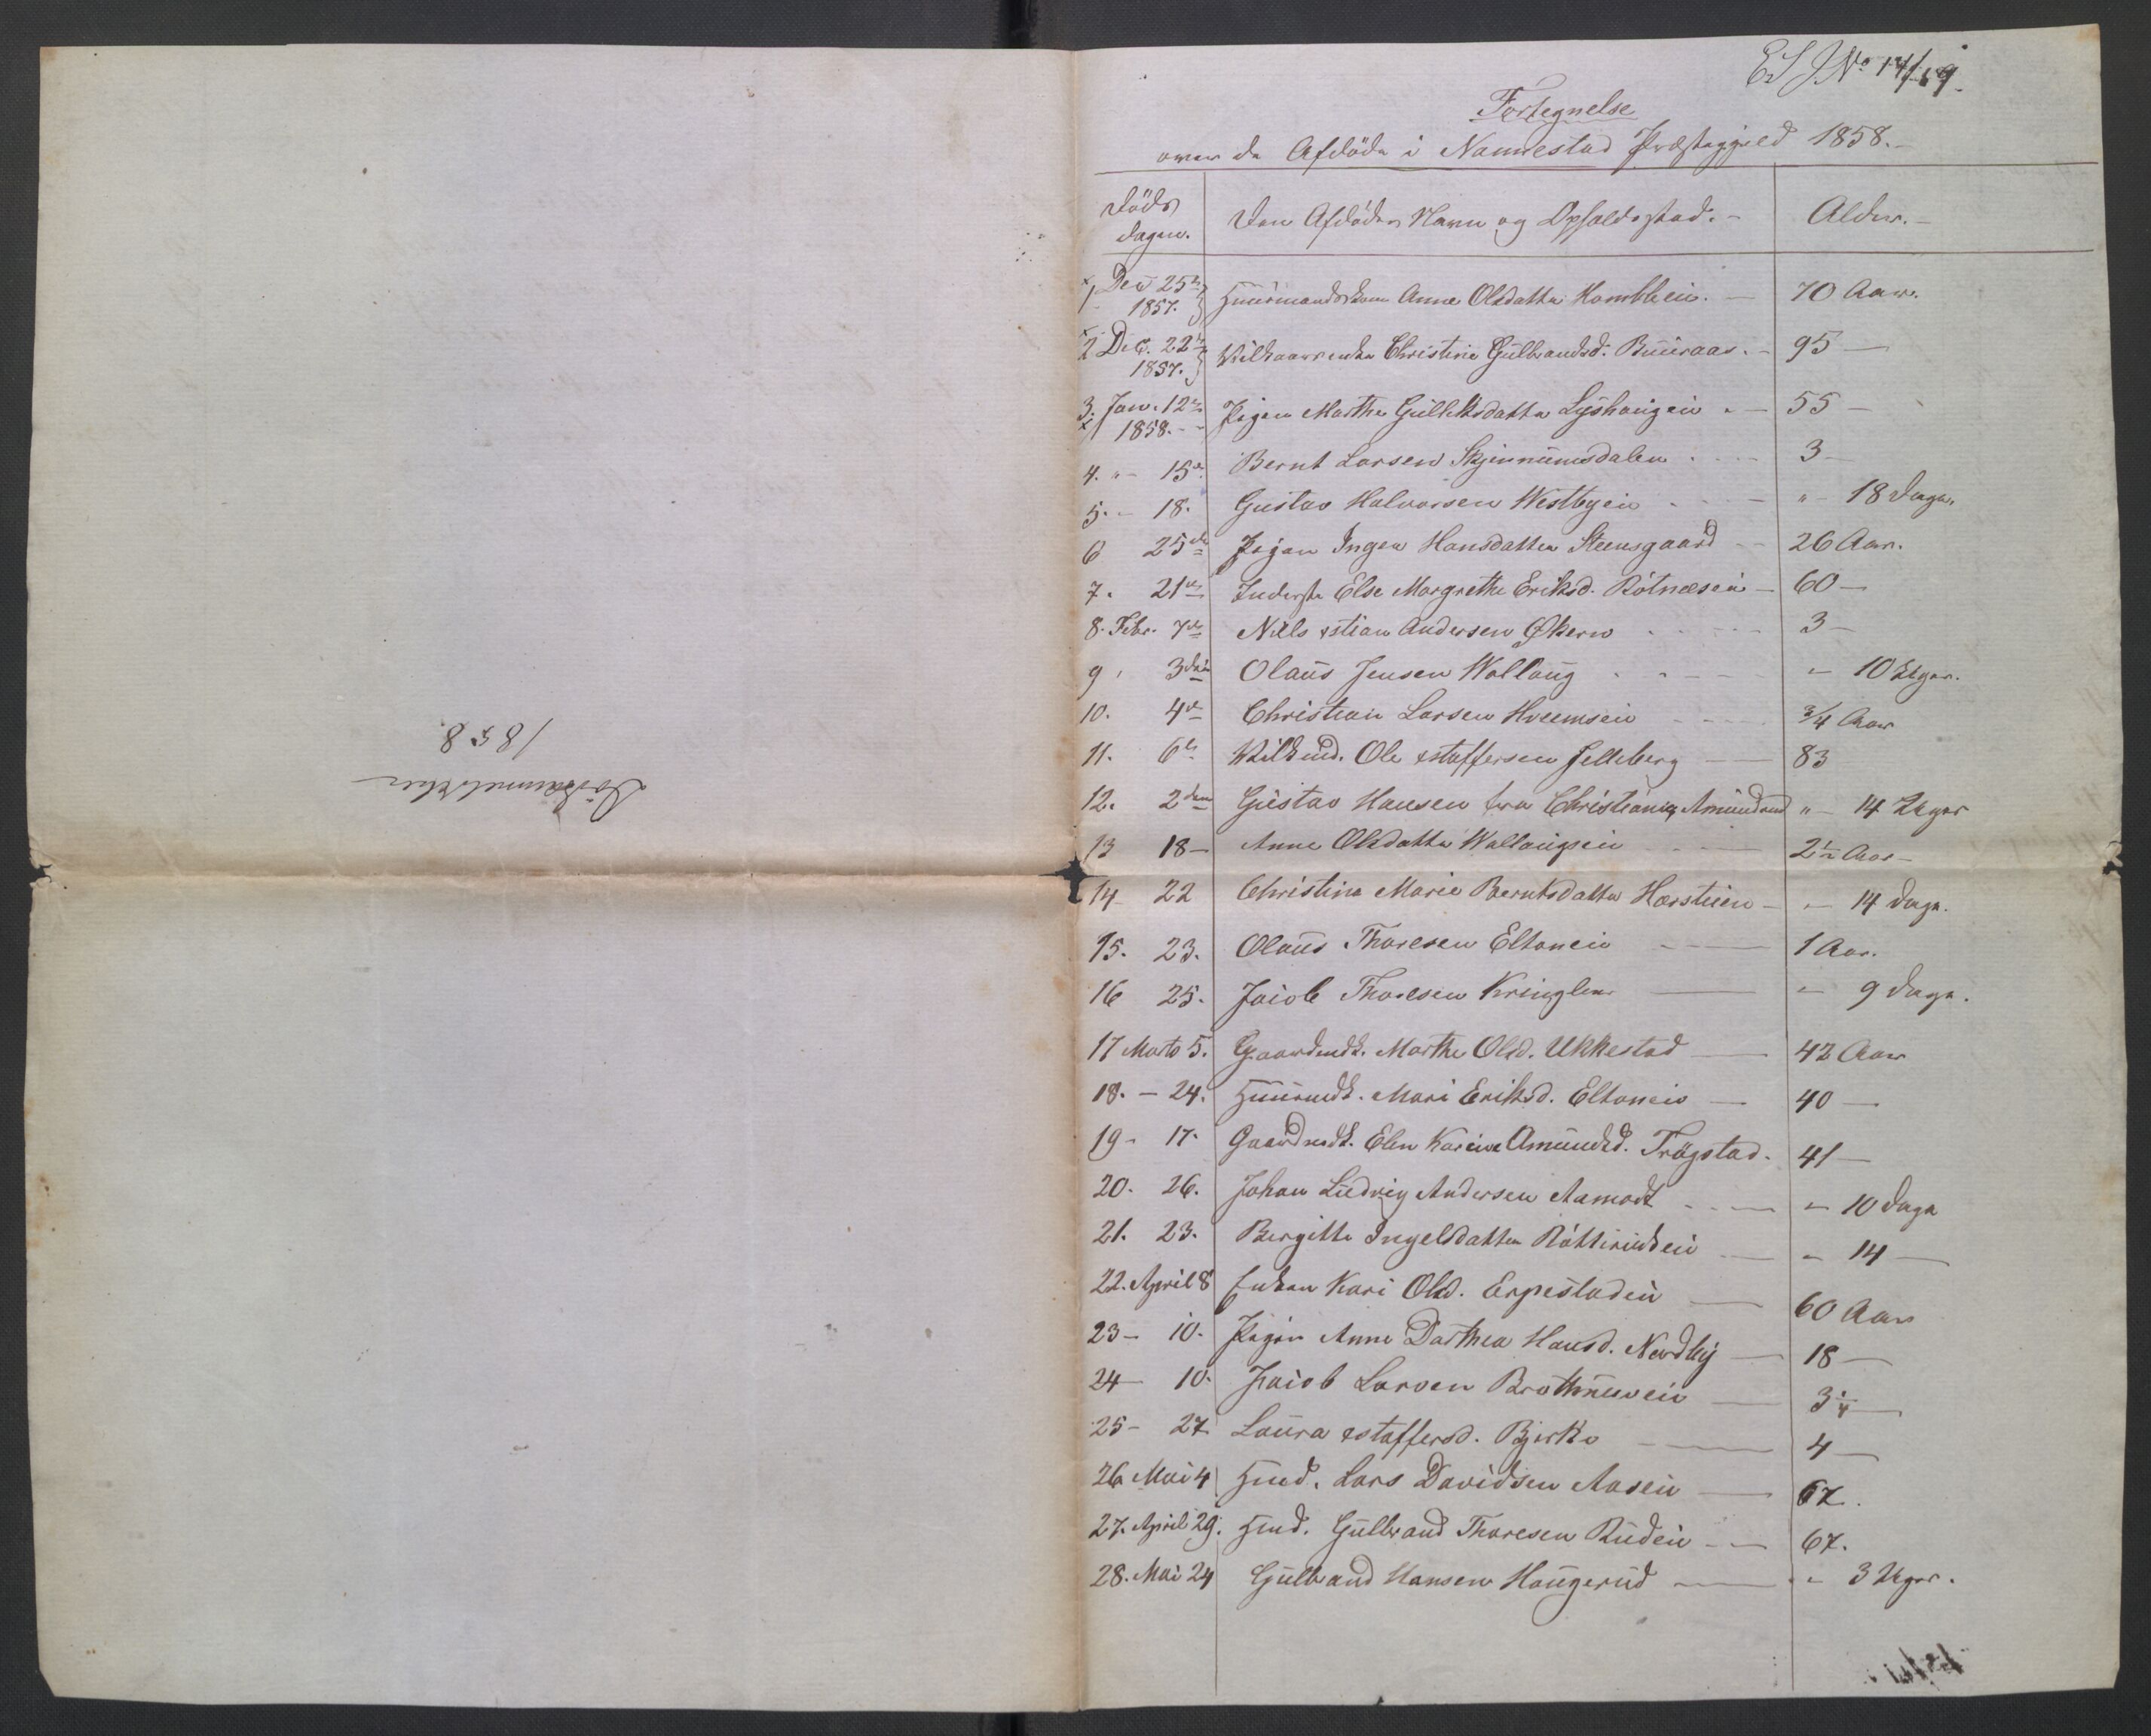 Dödsanmeldelser
1858.
ES JNo 14/59.
Fortegnelse
over de Afdöde i Nannestad Præstegjeld 1858.
Döds dagen. Den Afdödes Navn og Opholdssted. Alder.
1 Dec 25de 1857. Huusmandskone Anne Olsdatter Homblein. 70 Aar.
2 Dec. 22de 1857. Vilkaarsenke Christine Gulbrandsd. Buuraas. 95 —
3. Jan. 12te 1858. Pigen Marthe Gulliksdatter Lyshaugen 55 —
4. " 15de Bernt Larsen Skjennumsdalen 3 —
5. - 18. Gustav Halvorsen Westbyein " 18 Dage.
6 25de Pigen Ingen Hansdatter Steensgaard 26 Aar.
7. 21de Inderste Else Margrethe Eriksd. Rötnesein 60 —
8. Febr. 7de Nils xstian Andersen Økern 3 —
9 3die Olaus Jensen Wallaug " 10 Uger.
10. 4de Christian Larsen Hveemsein 3/4 Aar
11. 6te Vilkmd. Ole xstoffersen Jelleberg 83
12. 2den Gustav Hansen fra Christiania, Amundrud " 14 Uger
13 18 — Anne Olsdatter Wallaugsein 2 1/2 Aar —
14 22 Christine Marie Berntsdatter Horstuen " 14 Dage.
15. 23. Olaus Thoresen Eltonein 1 Aar.
16 25. Jacob Thoresen Kringler " 9 Dage.
17 Marts 5. Gaardmdk. Marthe Olsd. Ukkestad 42 Aar
18. — 24. Huusmdk. Mari Eriksd. Eltonein 40 —
19 - 17. Gaardmdk. Elen Karine Amundsd. Trögstad. 41 —
20. 26. Johan Ludvig Andersen Aamodt " 10 Dage
21. 23. Bergitte Ingelsdatter " 14 —
22. April 8 Enken Kari Olsd. Erpestadein 60 Aar
23 — 10. Pigen Anne Dorthea Hansd. Nordby 18 —
24 — 10. Jacob Larsen 3 1/4 —
25 - 27 Laura xstoffersd. Bjerke 4 —
26 Mai 4 Hmd. Lars Davidsen Aasein 67.
27. April 29. Hmd. Gulbrand Thoresen Rudein 67.
28. Mai 24 Gulbrand Hansen Haugerud " 3 Uger.